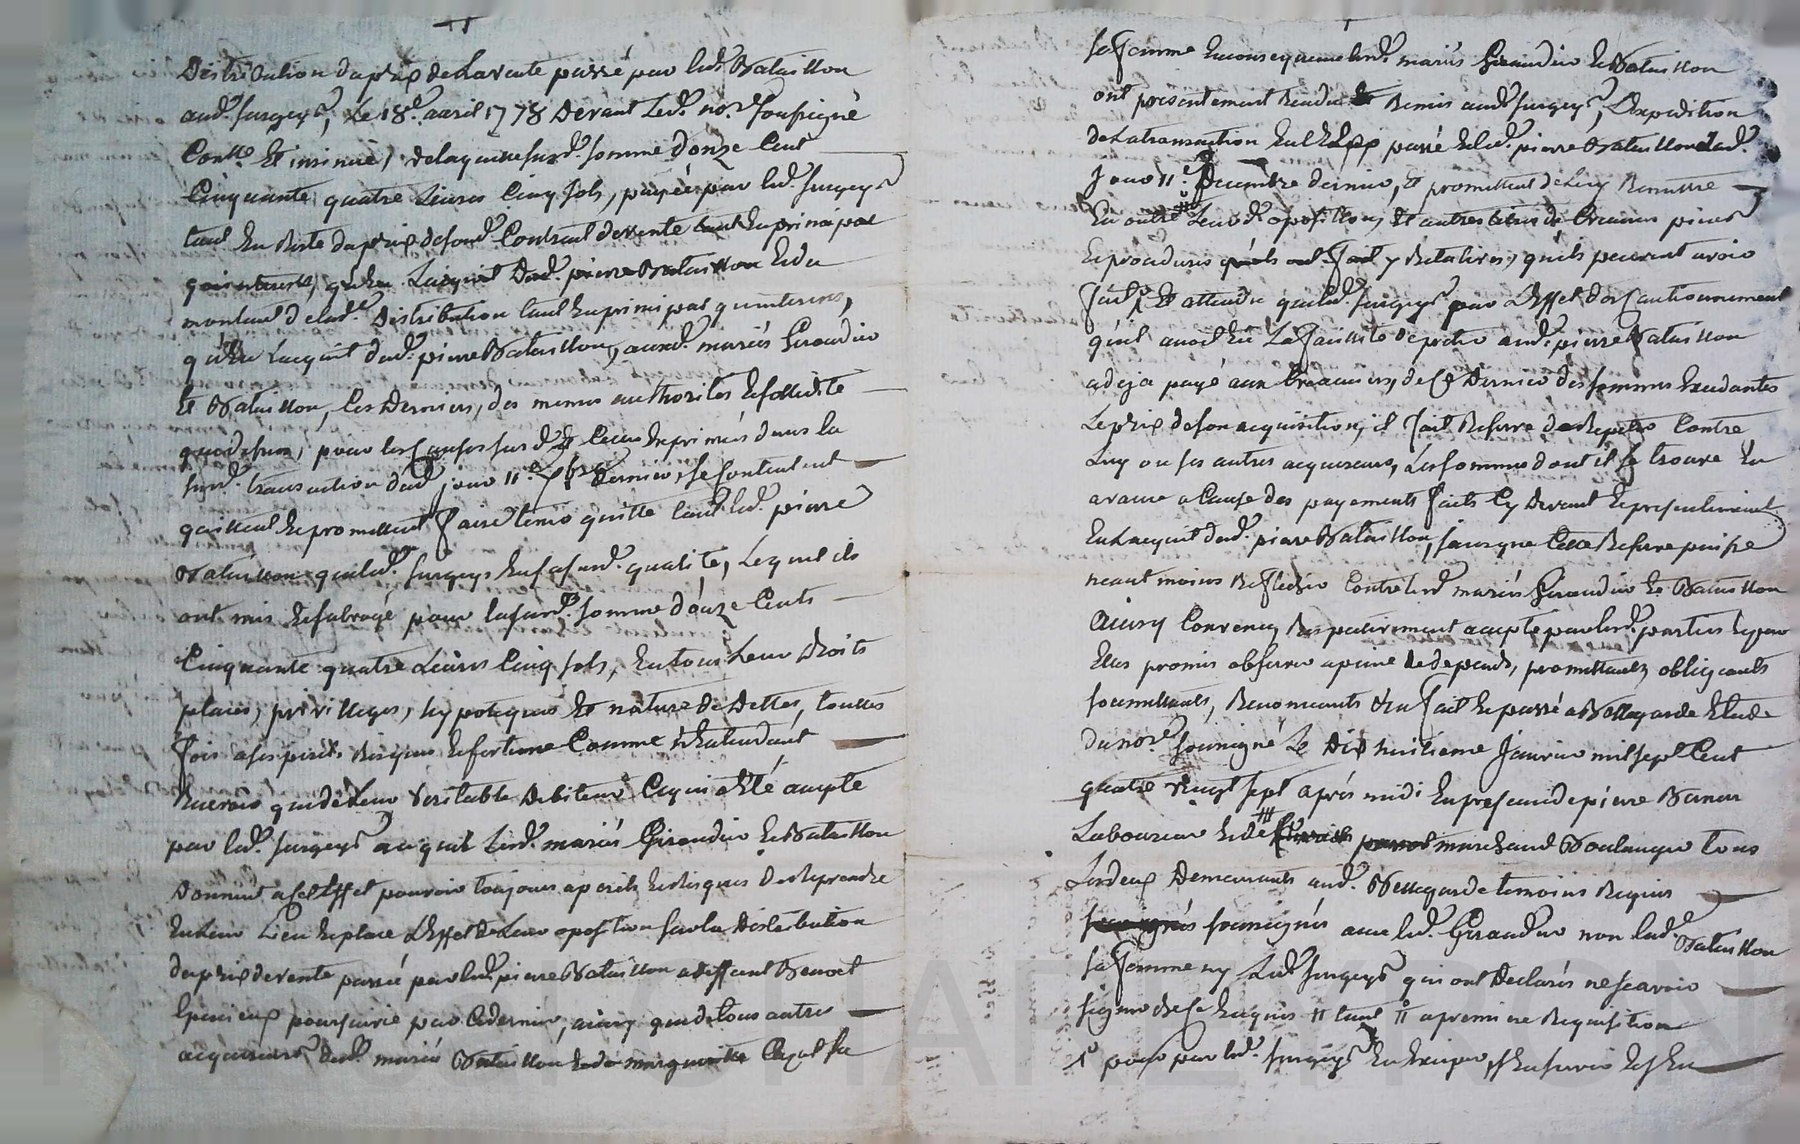 Distribution du prix de La vente passé par led. Bataillon
aud. Surgeys, Le 18e. avril 1778 Devant Led. nore. soussigné
Contllé Et insinué, de laquelle susd. somme d'onze Cent
Cinquante quatre Livres Cinq sols, payée par led. Surgeys
tant En Reste du prix de son d. Contract de vente tant En principal
qu'interests, qu'En L'acquit Dud. pierre Bataillon Et du
montant de lad. Distribution tant En principal qu'interests,
qu'En L'acquit dud. pierre Bataillon, auxd. mariés Giraudier
Et Bataillon, Ces Derniers, des memes authorités Et solidité
que dessus, pour les Causes susd. Et Celles Exprimées dans la
susd. transaction dud. jour 11e. Xbre Dernier, se Contentent
quittent Et promettent faire tenir quitte tant led. pierre
Bataillon que led. Surgeys En sa susd. qualité, Lequel ils
ont mis Et subrogé pour la susd. somme d'onze Cents
Cinquante quatre Livres Cinq sols, En tous Leurs Droits
places, privilleges, hypoteques Et nature De Dettes, touttes
fois a ses perils Risques Et fortune Comme s'Entendant
Envers que de Leur veritable Debiteur Ce qui a Eté accepté
par led. Surgeys auquel Lesd. mariés Giraudier Et Bataillon
Donnent a Cet Effet pouvoir toujours a perils Et Risques De Reprendre
En Leur Lieu Et place L'Effet De Leur oposition sur la Distribution
du prix de vente passée par led. pierre Bataillon a Benoit
poursuivie par Ce dernier, ainsy que de tous autres
acquereurs dud. mariés Bataillon Et de marguerite Cazot sa
sa femme En consequence lesd. mariés Giraudier Et Bataillon
ont presentement Rendu Et Remis aud. Surgeys, L'Expedition
de La transaction passé Et led. pierre Bataillon Lad.
jour 11e. Decembre dernier, Et promettent de Luy Remettre
En outre Leurs d. opositions, Et autres titres de Creances pieces
Et procedures y Relatives, qu'ils peuvent avoir
fait, Et attendu que led. Surgeys par L'Effet du Cautionnement
qu'il avoit Eu La facilité de preter aud. pierre Bataillon
a deja payé aux Creanciers, de Ce Dernier des sommes Excedantes
Le prix de son acquisition, il fait Reserve de Repeter Contre
Luy ou ses autres acquereurs, Les sommes dont il se trouve En
avance a Cause des payements faits Cy Devant Et presentement
En L'acquit dud. pierre Bataillon, sans que Cette Reserve puisse
neant moins Reflechir Contre lesd. mariés Giraudier Et Bataillon
Ainsy Convenu, Respectivement accepté par lesd. parties Et par
Elles promis observer a peine de depends, promettants, obligeants
soumettants, Renonceants &c. fait Et passé a Bellegarde Etude
du nore. soussigné Le Dix huitieme Janvier mil sept Cent
quatre vingt sept après midi En presence de pierre
Laboureur Et de marchand Boulanger tous
Les deux Demeurants aud. Bellegarde temoins Requis
soussignés avec led. Giraudier non lad. Bataillon
sa femme ny Led. Surgeys qui ont Declarés ne scavoir
signer de ce Enquis Et a premiere Requisition
1° pour par led. Surgeys